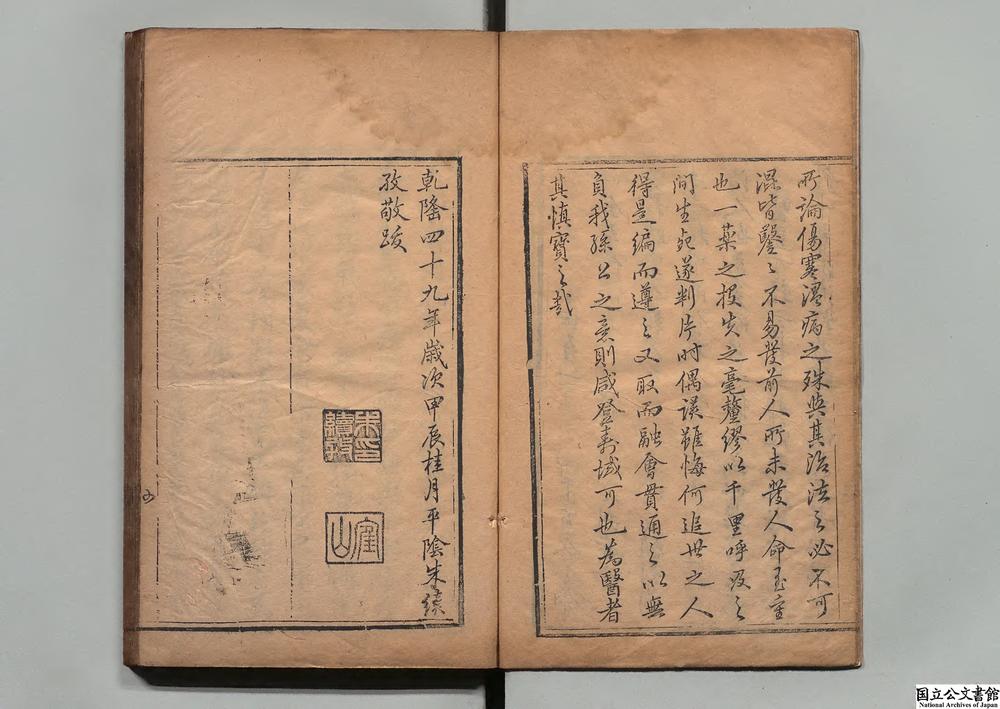 所論傷寒溫病之殊與其治法之必不可
混皆鑿〻不易發前人所未發人命至重
也一藥之投失之毫釐繆以千里呼吸之
間生死遂判片時偶誤雖悔何追世之人
得是編而遵之又取而融會貫通之以無
負我孫公之意則咸登壽域可也為醫者
其慎寶之哉
乾隆四十九年歲次甲辰桂月平陰朱續
孜敬跋
朱印
續孜
崔山
国立公文書館
National Archives of Japan